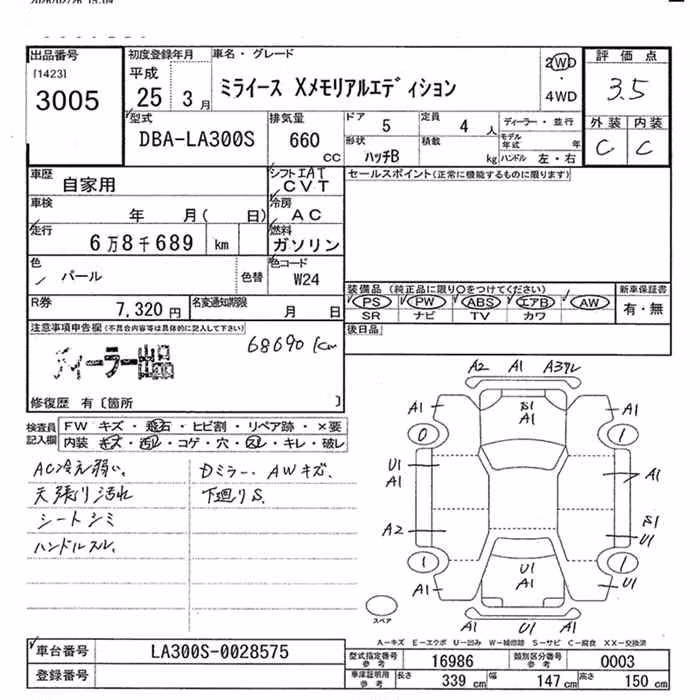 出品番号
[1423]
3005
初度登録年月
平成
25 3月
車名・グレード
ミライース Xメモリアルエディション
2WD
・
4WD
評価点
3.5
外装 内装
C C
型式
DBA-LA300S
排気量
660
CC
ドア 5
定員 4 人
ディーラー・並行
モデル年式 年
形状
ハッチB
積載
kg
ハンドル 左・右
車歴
自家用
シフト IAT
CVT
セールスポイント(正常に機能するものに限ります)
車検
年 月( 日)
冷房
AC
走行
6万8千689 km
燃料
ガソリン
色
パール
色替
色コード
W24
装備品 (純正品に限り○をつけてください)
PS PW ABS エアB AW
SR ナビ TV カワ
新車保証書
有・無
R券
7,320 円
名変通知期限
月 日
後日品
注意事項申告欄(不具合内容等は具体的に記入して下さい)
ディーラー出品
68690 km
修復歴 有〔箇所 〕
検査員記入欄
FW キズ・飛石・ヒビ割・リペア跡・×要
内装 キズ・汚レ・コゲ・穴・スレ・キレ・破レ
AC冷え弱い、
天張り汚れ
シートシミ
ハンドルスレ、
Dミラー、AWキズ、
下廻りS、
A2 A1
A1 A1
S1
A1
0 1
U1
A1
A1
A2
S1
U1
1 1
U1
A1
A1 U1
A1 U1 A1
スペア
A−キズ E−エクボ U−凹み W−補修跡 S−サビ C−腐食 XX−交換済
車台番号
LA300S-0028575
登録番号
型式指定番号
参考
16986
類別区分番号
参考
0003
車庫証明用
参考
長さ 339 cm 幅 147 cm 高さ 150 cm